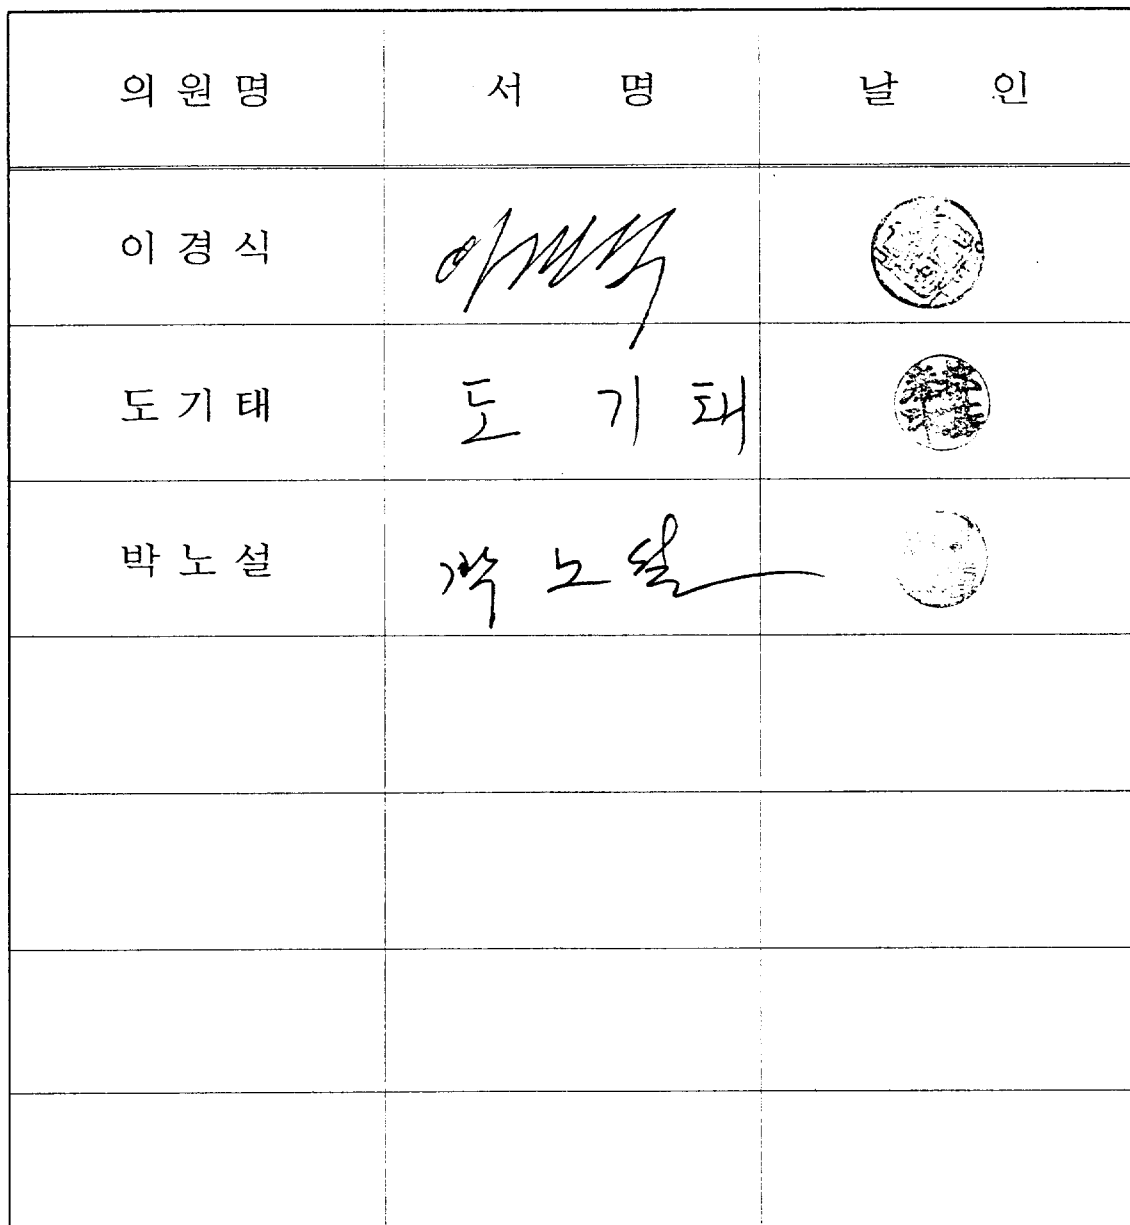 의 원 명 서 명 날 인
이 경 식 이경식
도 기 태 도 기 태
박 노 설 박 노 설